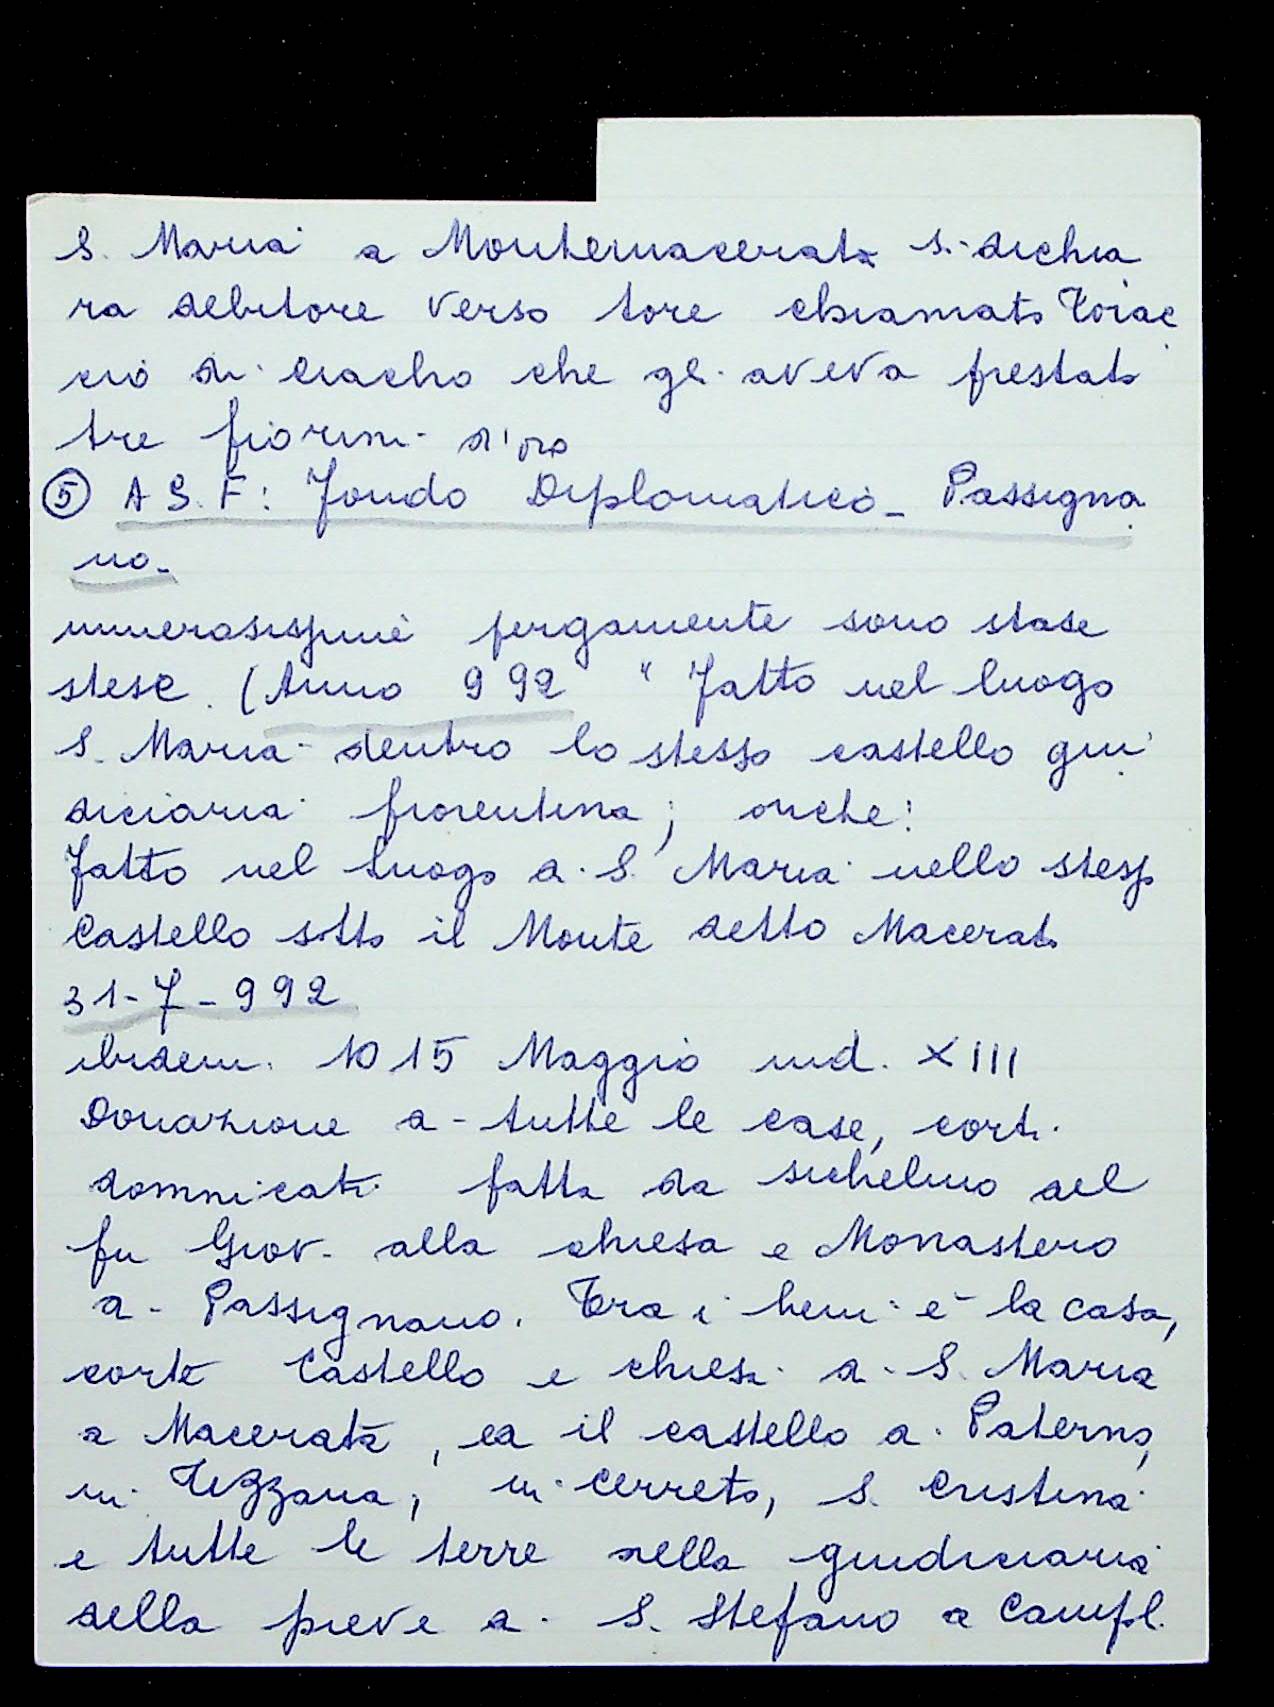 S. Maria a Montemacerata si dichia
ra debitore verso tore chiamato Toiac
cio di Ciacho che gli aveva prestato
tre fiorini d'oro
⑤ A S. F: Fondo Diplomatico - Passigna
no -
numerosissime pergamente sono stase
stese. (Anno 992 " Fatto nel luogo
S. Maria dentro lo stesso castello giu
diciaria fiorentina; anche:
Fatto nel luogo di S. Maria nello stesso
Castello sotto il Monte detto Macerato
31-7-992
ibidem. 1015 Maggio ind. XIII
Donazione di tutte le case, corti
domnicati fatta da Sichelmo del
fu Giov. alla chiesa e Monastero
di Passignano. Tra i beni è la casa,
corte Castello e chiesa di S. Maria
a Macerata, ed il castello di Paterno,
in Tizzana, in Cerreto, S. Cristina
e tutte le terre nella giudiciaria
della pieve di S. Stefano a Campl.